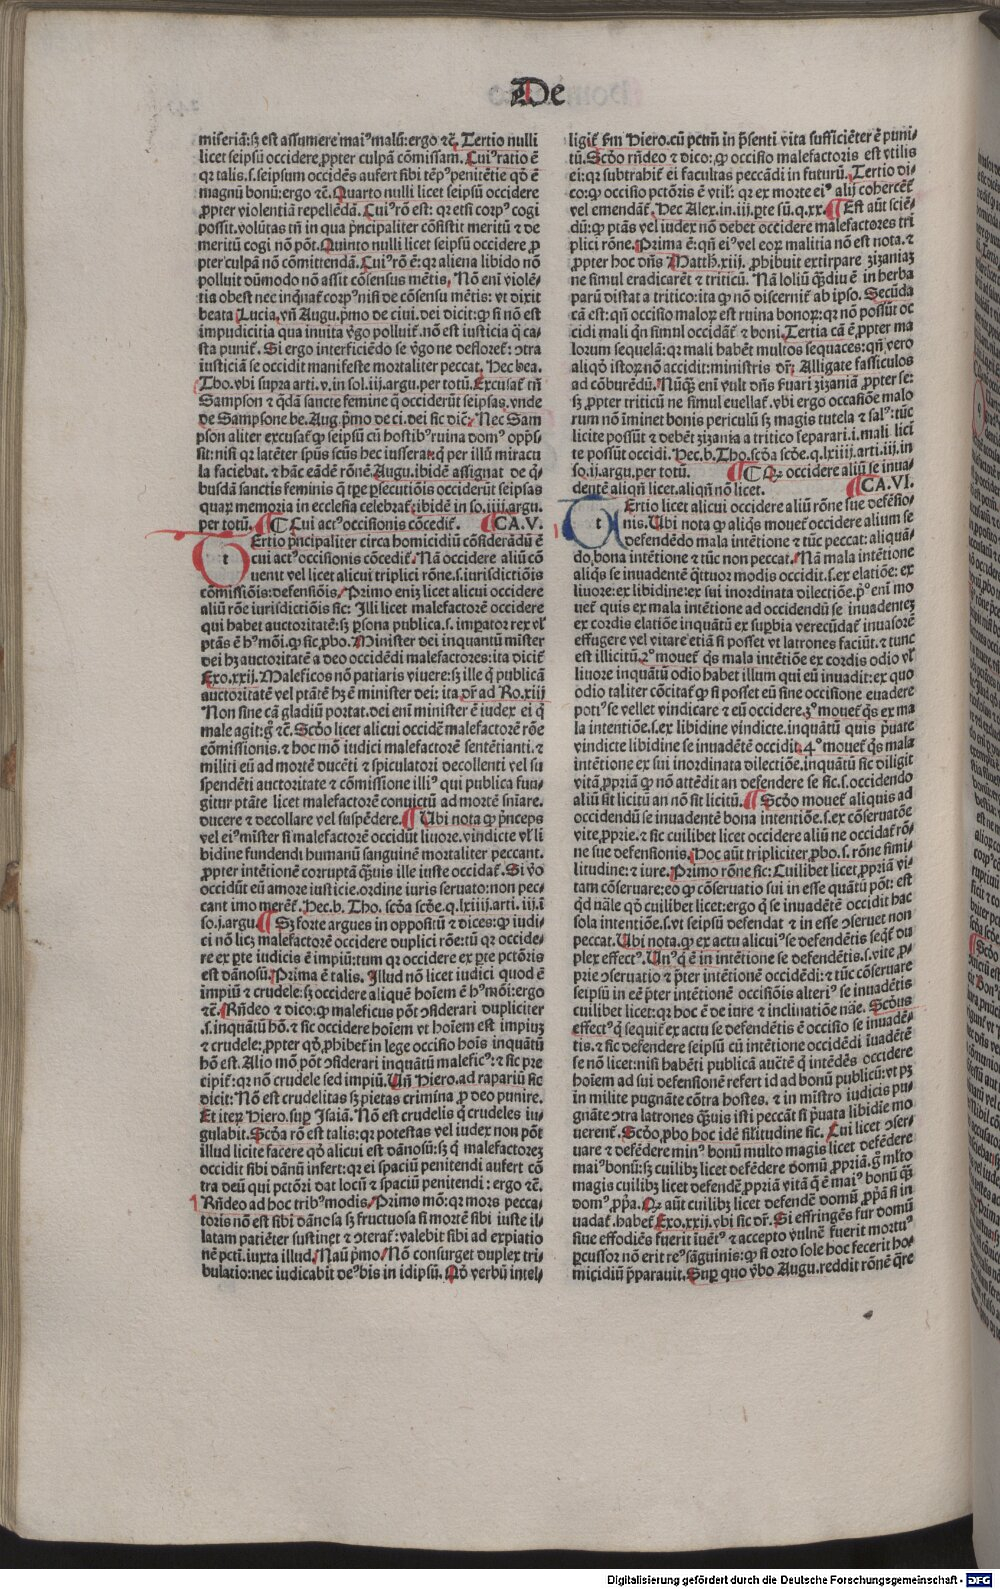 De
miseriã: sꝫ est assumere mai᷒ malũ: ergo ⁊c̃. Tertio nulli
licet seipsũ occidere ꝓpter culpã cõmissam. Cui᷒ ratio ẽ
qꝛ talis .s. seipsum occidẽs aufert sibi tẽp᷒ penitẽtie qď ẽ
magnũ bonũ: ergo ⁊c̃. Quarto nulli licet seipsũ occidere
ꝓpter violentiã repellẽdã. Cui᷒ rõ est: qꝛ etsi corp᷒ cogi
possit. volũtas tñ in qua pͥncipaliter cõsistit meritũ ⁊ de
meritũ cogi nõ põt. Quinto nulli licet seipsũ occidere ꝓ
pter culpã nõ cõmittendã. Cui᷒ rõ ẽ: qꝛ aliena libido nõ
polluit dũmodo nõ assit cõsensus mẽtis. Nõ eni violẽ/
tia obest nec inqͥnat̃ corp᷒ nisi de cõsensu mẽtis: vt dixit
beata Lucia. vñ Augu. pͥmo de ciui. dei dicit: ꝙ si nõ est
impudicitia qua inuita vͥgo polluit̃. nõ est iusticia q̃ ca/
sta punit̃. Si ergo interficiẽdo se vͥgo ne defloret̃: ↄtra
iusticiã se occidit manifeste mortaliter peccat. Hec bea.
Tho. vbi supra arti. v. in sol. iii. argu. per totũ. Excusat̃ tñ
Sampson ⁊ q̃dã sancte femine q̃ occiderũt seipsas. vnde
de Sampsone be. Aug. pͥmo de ci. dei sic dic̃: Nec Sam
pson aliter excusat̃ ꝙ seipsũ cũ hostib᷒ ruina dom᷒ opp̃s/
sit: nisi qꝛ latẽter spũs scũs hec iusserat: q̃ per illũ miracu
la faciebat. ⁊ hãc eãdẽ rõnẽ Augu. ibidẽ assignat de q̃
busdã sanctis feminis q̃ tp̃e ꝑsecutiõis occiderũt seipsas
quaꝝ memoria in ecclesia celebrat̃: ibidẽ in so. iiii. argu.
per totũ. ¶ Cui act᷒ occisionis cõcedit̃. ¶ CA. V.
Tertio pͥncipaliter circa homicidiũ cõsiderãdũ ẽ
cui act᷒ occisionis cõcedit̃. Nã occidere aliũ cõ
uenit vel licet alicui triplici rõne .s. iurisdictiõis
cõmissiõis: defensiõis. Primo enĩ licet alicui occidere
aliũ rõe iurisdictiõis sic: Illi licet malefactorẽ occidere
qui habet auctoritatẽ: sꝫ ꝑsona publica .s. imꝑator rex vl̃
ptãs ẽ h᷒mõi. ꝙ sic ꝓbo. Minister dei inquantũ mĩster
dei hꝫ auctoritatẽ a deo occidẽdi malefactores: ita dicit̃
Exo. xxij. Maleficos nõ patiaris viuere: sꝫ ille q̃ publicã
auctoritatẽ vel ptãtẽ hꝫ ẽ minister dei: ita dr̃ ad Ro. xiij
Non sine cã gladiũ portat. dei eni minister ẽ iudex ei q̃
male agit: g̃ ⁊c̃. Scďo licet alicui occidẽ malefactorẽ rõe
cõmissionis. ⁊ hoc mõ iudici malefactorẽ sentẽtianti. ⁊
militi eũ ad mortẽ ducẽti ⁊ spiculatori decollenti vel su
spendẽti auctoritate ⁊ cõmissione illi᷒ qui publica fun/
gitur ptãte licet malefactorẽ conuictũ ad mortẽ sñiare.
ducere ⁊ decollare vel suspẽdere. ¶ Ubi nota ꝙ pͥnceps
vel ei᷒ mĩster si malefactorẽ occidũt liuore. vindicte vl̃ li
bidine fundendi humanũ sanguinẽ mortaliter peccant.
ꝓpter intẽtionẽ corruptã q̃uis ille iuste occidat̃. Si vo
occidũt eũ amore iusticie. ordine iuris seruato: non pec/
cant imo merẽt̃. Hec. b. Tho. scďa scďe. q. lxiiii. arti. iii. ĩ
so. j. argu. ¶ Sꝫ forte argues in oppositũ ⁊ dices: ꝙ iudi/
ci nõ licꝫ malefactorẽ occidere duplici rõe: tũ qꝛ occide/
re ex ꝑte iudicis ẽ impiũ: tum qꝛ occidere ex ꝑte pctõris
est dãnosũ. Prima ẽ talis. Illud nõ licet iudici quod ẽ
impiũ ⁊ crudele: sꝫ occidere aliquẽ hoĩem ẽ h᷒mõi: ergo
⁊c̃. Rñdeo ⁊ dico: ꝙ maleficus põt ↄsiderari dupliciter
.s. inquãtũ hõ. ⁊ sic occidere hoĩem vt hoĩem est impiuꝫ
⁊ crudele: ꝓpter qď ꝓhibet̃ in lege occisio hoĩs inquãtũ
hõ est. Alio mõ põt ↄsiderari inquãtũ malefic᷒: ⁊ sic pre
cipit̃: qꝛ nõ crudele sed impiũ. Uñ Hiero. ad rapariũ sic
dicit: Nõ est crudelitas sꝫ pietas crimina ꝓ deo punire.
Et iteꝝ Hiero. suꝑ Isaiã. Nõ est crudelis q̃ crudeles iu/
gulabit. Scďa rõ est talis: qꝛ potestas vel iudex non põt
illud licite facere qď alicui est dãnosũ: sꝫ q̃ malefactoreꝫ
occidit sibi dãnũ infert: qꝛ ei spaciũ penitendi aufert cõ
tra deũ qui pctõri dat locũ ⁊ spaciũ penitendi: ergo ⁊c̃.
Rñdeo ad hoc trib᷒ modis. Primo mõ: qꝛ mors pecca/
toris nõ est sibi dãnosa sꝫ fructuosa si mortẽ sibi iuste il/
latam patiẽter sustinet ⁊ ↄterat̃: valebit sibi ad expiatio
nẽ pctĩ. iuxta illud. Naũ pͥmo. Nõ consurget duplex tri/
bulatio: nec iudicabit de᷒ bis in idipsũ. Qď verbũ intel/
ligit̃ fm Hiero. cũ pctm̃ in pͥsenti vita sufficiẽter ẽ puni/
tũ. Scďo rñdeo ⁊ dico: ꝙ occisio malefactoris est vtilis
ei: qꝛ subtrahit̃ ei facultas peccãdi in futurũ. Tertio di/
co: ꝙ occisio pctõris ẽ vtil̃: qꝛ ex morte ei᷒ alij cohercẽt̃
vel emendãt̃. Hec Alex. in. iii. ꝑte sũ. q. xx. ¶ Est aũt sciẽ/
dũ: ꝙ ptãs vel iudex nõ debet occidere malefactores tri
plici rõne. Prima ẽ: qñ ei᷒ vel eoꝝ malitia nõ est nota. ⁊
ꝓpter hoc dñs Matth̃. xiij. ꝓhibuit extirpare zizaniaꝫ
ne simul eradicarẽt ⁊ triticũ. Nã loliũ q̃diu ẽ in herba
parũ distat a tritico: ita ꝙ nõ discernit̃ ab ipso. Secũda
cã est: qñ occisio maloꝝ est ruina bonoꝝ: qꝛ nõ possũt oc
cidi mali qñ simul occidãt̃ ⁊ boni. Tertia cã ẽ ꝓpter ma
lorum sequelã: qꝛ mali habẽt multos sequaces: qñ vero
aliqď istoꝝ nõ accidit: ministris dr̃: Alligate fasficulos
ad cõburẽdũ. Nũq̃ eni vult dñs ẜuari zizaniã ꝓpter se:
sꝫ ꝓpter triticũ ne simul euellat̃. vbi ergo occasiõe malo
rum nõ ĩminet bonis periculũ sꝫ magis tutela ⁊ sal᷒: tũc
licite possũt ⁊ debẽt zizania a tritico separari .i. mali lici
te possũt occidi. Hec. b. Tho. scďa scďe. q. lxiiii. arti. iii. in
so. ii. argu. per totũ. ¶ Qꝙ occidere aliũ se inua/
dentẽ aliqñ licet. aliqñ nõ licet. ¶ CA. VI.
Tertio licet alicui occidere aliũ rõne sue defẽsio/
nis. Ubi nota ꝙ aliq̃s mouet̃ occidere alium se
defendẽdo mala intẽtione ⁊ tũc peccat: aliquã/
do bona intẽtione ⁊ tũc non peccat. Nã mala intẽtione
aliq̃s se inuadentẽ q̃ttuor modis occidit .s. ex elatiõe: ex
liuore: ex libidine: ex sui inordinata dilectiõe. pͦ eni mo
uet̃ quis ex mala intẽtione ad occidendũ se inuadenteꝫ
ex cordis elatiõe inquãtũ ex suꝑbia verecũdat̃ inuasorẽ
effugere vel vitare etiã si posset vt latrones faciũt. ⁊ tunc
est illicitũ. 2ͦ mouet̃ q̃s mala intẽtiõe ex cordis odio vl̃
liuore inquãtũ odio habet illum qui eũ inuadit: ex quo
odio taliter cõcitat̃ ꝙ si posset eũ sine occisione euadere
poti᷒ se vellet vindicare ⁊ eũ occidere. 3ͦ mouet̃ q̃s ex ma
la intentiõe .s. ex libidine vindicte. inquãtũ quis pͥuate
vindicte libidine se inuadẽtẽ occidit. 4ͦ mouet̃ q̃s mala
intẽtione ex sui inordinata dilectiõe. inquãtũ sic diligit
vitã ꝓpriã ꝙ nõ attẽdit an defendere se sic .s. occidendo
aliũ sit licitũ an nõ sit licitũ. ¶ Scďo mouet̃ aliquis ad
occidendũ se inuadentẽ bona intentiõe .s. ex cõseruatõe
vite ꝓprie. ⁊ sic cuilibet licet occidere aliũ ne occidat̃ rõ/
ne sue defensionis. Hoc aũt tripliciter ꝓbo .s. rõne simi/
litudine: ⁊ iure. Primo rõne sic: Cuilibet licet ꝓpriã vi/
tam cõseruare: eo ꝙ cõseruatio sui in esse quãtũ põt: est
qď nãle qď cuilibet licet: ergo q̃ se inuadẽtẽ occidit hac
sola intentiõe .s. vt seipsũ defendat ⁊ in esse ↄseruet non
peccat. Ubi nota. ꝙ ex actu alicui᷒ se defendẽtis seq̃t̃ du
plex effect᷒. Un᷒ q̃ ẽ in intẽtione se defendẽtis .s. vite ꝓ/
prie ↄseruatio ⁊ pͥter intẽtionẽ occidẽdi: ⁊ tũc cõseruare
seipsũ in eẽ pͥter intẽtionẽ occisiõis alteri᷒ se inuadẽtis
cuilibet licet: qꝛ hoc ẽ de iure ⁊ inclinatiõe nãe. Scďus
effect᷒ q̃ sequit̃ ex actu se defendẽtis ẽ occisio se inuadẽ/
tis. ⁊ sic defendere seipsũ cũ intẽtione occidẽdi ĩuadẽtẽ
se nõ licet: nisi habẽti publicã auctẽ q̃ intẽdẽs occidere
hoĩem ad sui defensionẽ refert id ad bonũ publicũ: vt pꝫ
in milite pugnãte cõtra hostes. ⁊ in mĩstro iudicis pu/
gnãte ↄtra latrones q̃uis isti peccãt si pͥuata libidie mo
uerent̃. Scďo ꝓbo hoc idẽ sil̃itudine sic. Cui licet ↄser/
uare ⁊ defendere min᷒ bonũ multo magis licet defẽdere
mai᷒ bonũ: sꝫ cuilibꝫ licet defẽdere domũ ꝓpriã. g̃ ml̃to
magis cuilibꝫ licet defendẽ ꝓpriã vitã q̃ ẽ mai᷒ bonũ q̃
dom᷒ ꝓp̃a. Qꝙ aũt cuilibꝫ licet defendẽ domũ ꝓp̃ã si in
uadat̃. habet̃ Exo. xxij. vbi sic dr̃. Si effringẽs fur domũ
siue effodiẽs fuerit ĩuẽt᷒ ⁊ accepto vulnẽ fuerit mortu᷒
ꝑcussor nõ erit re᷒ sãguinis: ꝙ si orto sole hoc fecerit ho/
micidiũ pͥparauit. Suꝑ quo vͥbo Augu. reddit rõnẽ q̃re
Digitalisierung gefördert durch die Deutsche Forschungsgemeinschaft - DFG